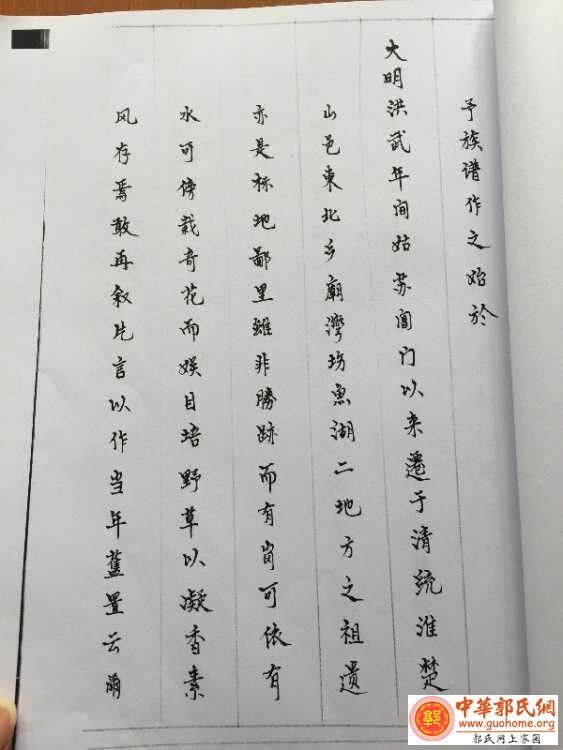 予族谱作之始於
大明洪武年间姑苏阊门以来遷于清统淮楚
山邑東北乡廟灣坊魚湖二地方之祖遗
亦是标地鄙里雖非勝跡而有岗可依有
水可傍栽奇花而娱目培野草以凝香素
风存焉敢再叙片言以作当年蓝置云尔
中華郭氏網
www.guohome.org
郭氏网上家园